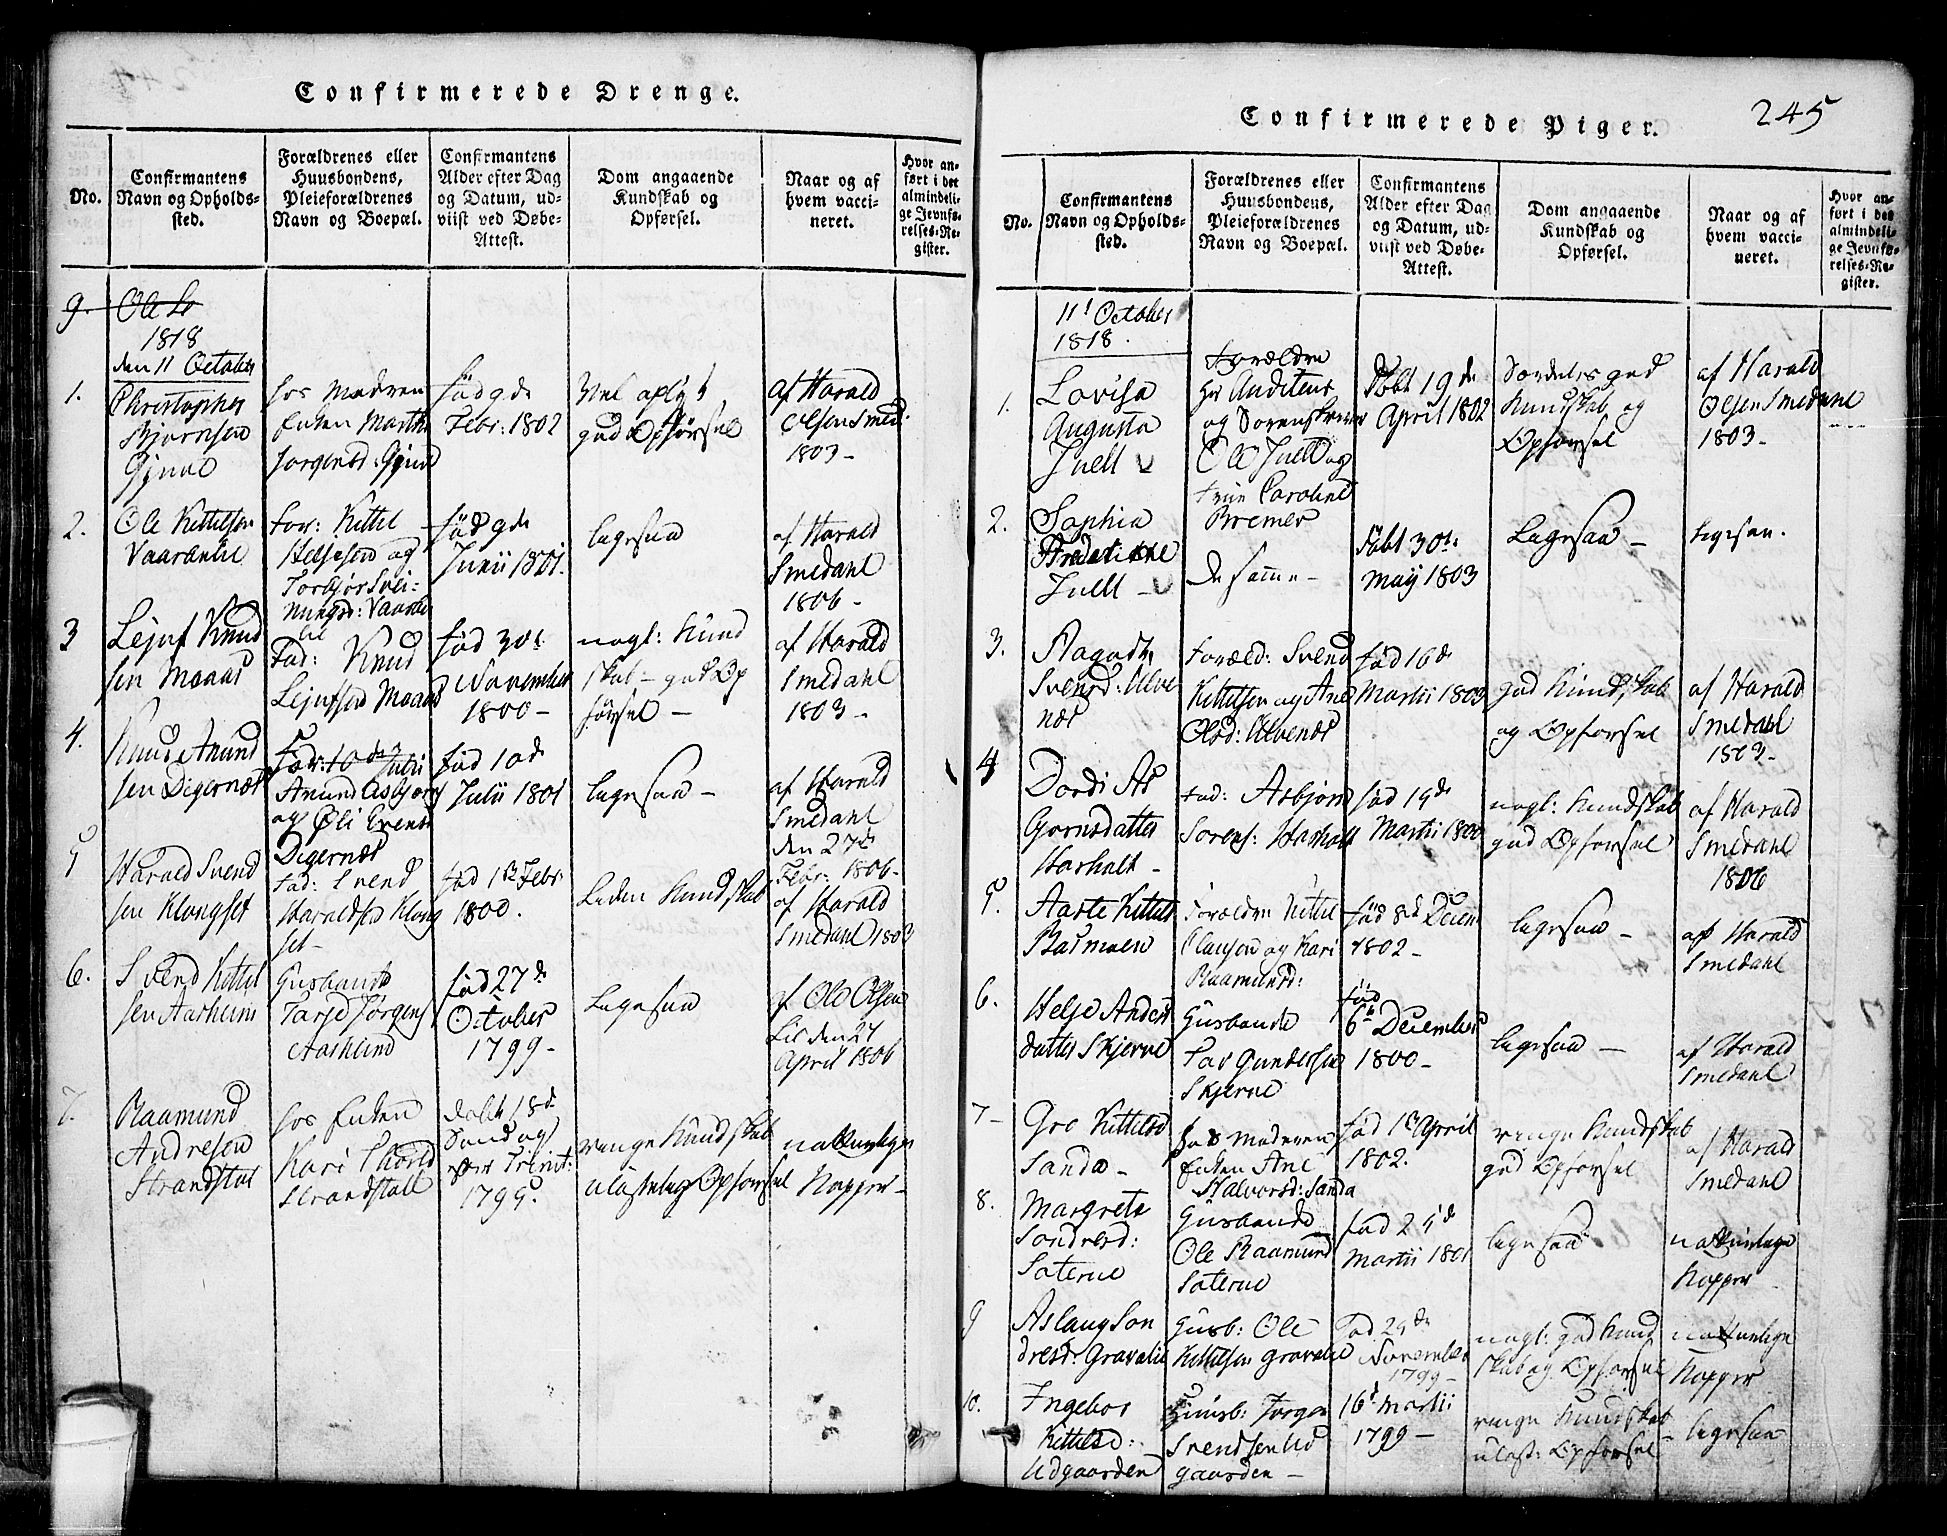 Confirmerede Drenge.
No.
Confirmantens
Navn og Opholds-
sted.
Forældrenes eller
Huusbondens,
Pleieforældrenes
Navn og Boepæl.
Confirmantens
Alder efter Dag
og Datum, ud-
viist ved Døbe-
Attest.
Dom angaaende
Kundskab og
Opførsel.
Naar og af
hvem vacci-
neret.
Hvor an-
ført i det
almindeli-
ge Jevnfø-
relses-Re-
gister.
9.
1818
den 11 October
1.
Christopher
Bjørnsen
hos Moderen
Enken Marthe
Jørgensd:
fød 9de
Febr: 1802
Vel oplyst
god Opførsel
af Harald
Olsen Smed:
1803 -
2.
Ole Kittelsen
For: Kittel
og
fød 9de
Junii 1801.
ligesaa
af Harald
Smedahl
1806 -
3
Lejuf Knud
sen Moaas
Fad: Knud
Lejufsen Moaas
fød 30t
November
1800 -
nogl: Kund
skab - god Op
førsel -
af Harald
Smedahl
1803 -
4.
Knud Anund
sen Digernæs
Anund Asbjørns
og
Digernæs
fød 10de
Julii 1801
ligesaa -
af Harald
Smedahl
den 27de
Febr: 1806 -
5
Harald Svend
sen Klongset
Fad: Svend
Haraldsen Klong
set -
fød 1ste Febr
1800.
Liden Kundskab
af Harald
Smedahl 1803
6.
Svend Kittel
sen Aasheim
Husbonde
Tarje Jørgens
fød 27de
October
1799 -
Ligesaa
af Ole Olsen
Lie den 24
April 1806
7.
Raamund
Andresen
hos Enken
Kari
døbt 18de
Søndag
efter Trinit:
1799.
ringe Kundskab
ulastelig Opførsel
naturlige
Kopper -
Confirmerede Piger.
245
No.
Confirmantens
Navn og Opholds-
sted.
Forældrenes eller
Huusbondens,
Pleieforældrenes
Navn og Boepæl.
Confirmantens
Alder efter Dag
og Datum, ud-
viist ved Døbe-
Attest.
Dom angaaende
Kundskab og
Opførsel.
Naar og af
hvem vacci-
neret.
Hvor an-
ført i det
almindeli-
ge Jevnfø-
relses-Re-
gister.
11t October
1818.
1.
Lovisa
Augusta
Juell
Forældre
Hr Auditeur
og Sorenskriver
Ole Juell og
Caroline
Bremer
Døbt 19de
April 1802
Særdeles god
Kundskab og
Opførsel
af Harald
Olsen Smedahl
1803 -
2.
Sophia
Juell -
De samme -
Døbt 30te
Maij 1803
Ligesaa -
Ligesaa.
3.
Svensd: Ulve
næs
Foræld: Svend
Kittelsen og Ane
Olsd: Ulvenæs
fød 16de
Martii 1803
god Kundskab
og Opførsel
af Harald
Smedahl
1803 -
4
Dordi As
bjørnsdatter
Fad: Asbjørn
Sørens:
fød 19de
Martii 1800
nogl: Kundskab
god Opførsel
af Harald
Smedahl
1806
5.
Aaste Kittels
Forældre Kittel
Clausen og Kari
Raamunsd:
fød 8de Decem
1802 -
ligesaa -
af Harald
Smedahl
6.
Helje Anders
datter Skjerve
Husbonde
Tov Gundersen
Skjerve
fød
6te December
1800 -
ligesaa -
af Harald
Smedahl
7 -
Gro Kittelsd
Sanda -
hos Moderen
Enken Ane
Halvorsd: Sanda
fød 1ste April
1802.
ringe Kundskab
god Opførsel
af Harald
Smedahl
8.
Margrete
Sondresd:
Saterue
Husbonde
Ole Raamund
Saterue
fød 25de
Martii 1801
ligesaa
naturlige
Kopper
9
Aslaug Son
dresd: Gravalie
Husb: Ole
Kittelsen Gravalie
Fød 25de
November
1799 -
nogl: god Kund
skab og Opførsel
naturlige
Kopper
10.
Ingebor
Kittelsd: -
Udgaarden
Huusb: Jørgen
Svendsen Ud
gaarden -
16t Martii
1799 -
ringe Kundskab
ulast: Opførsel
ligesaa